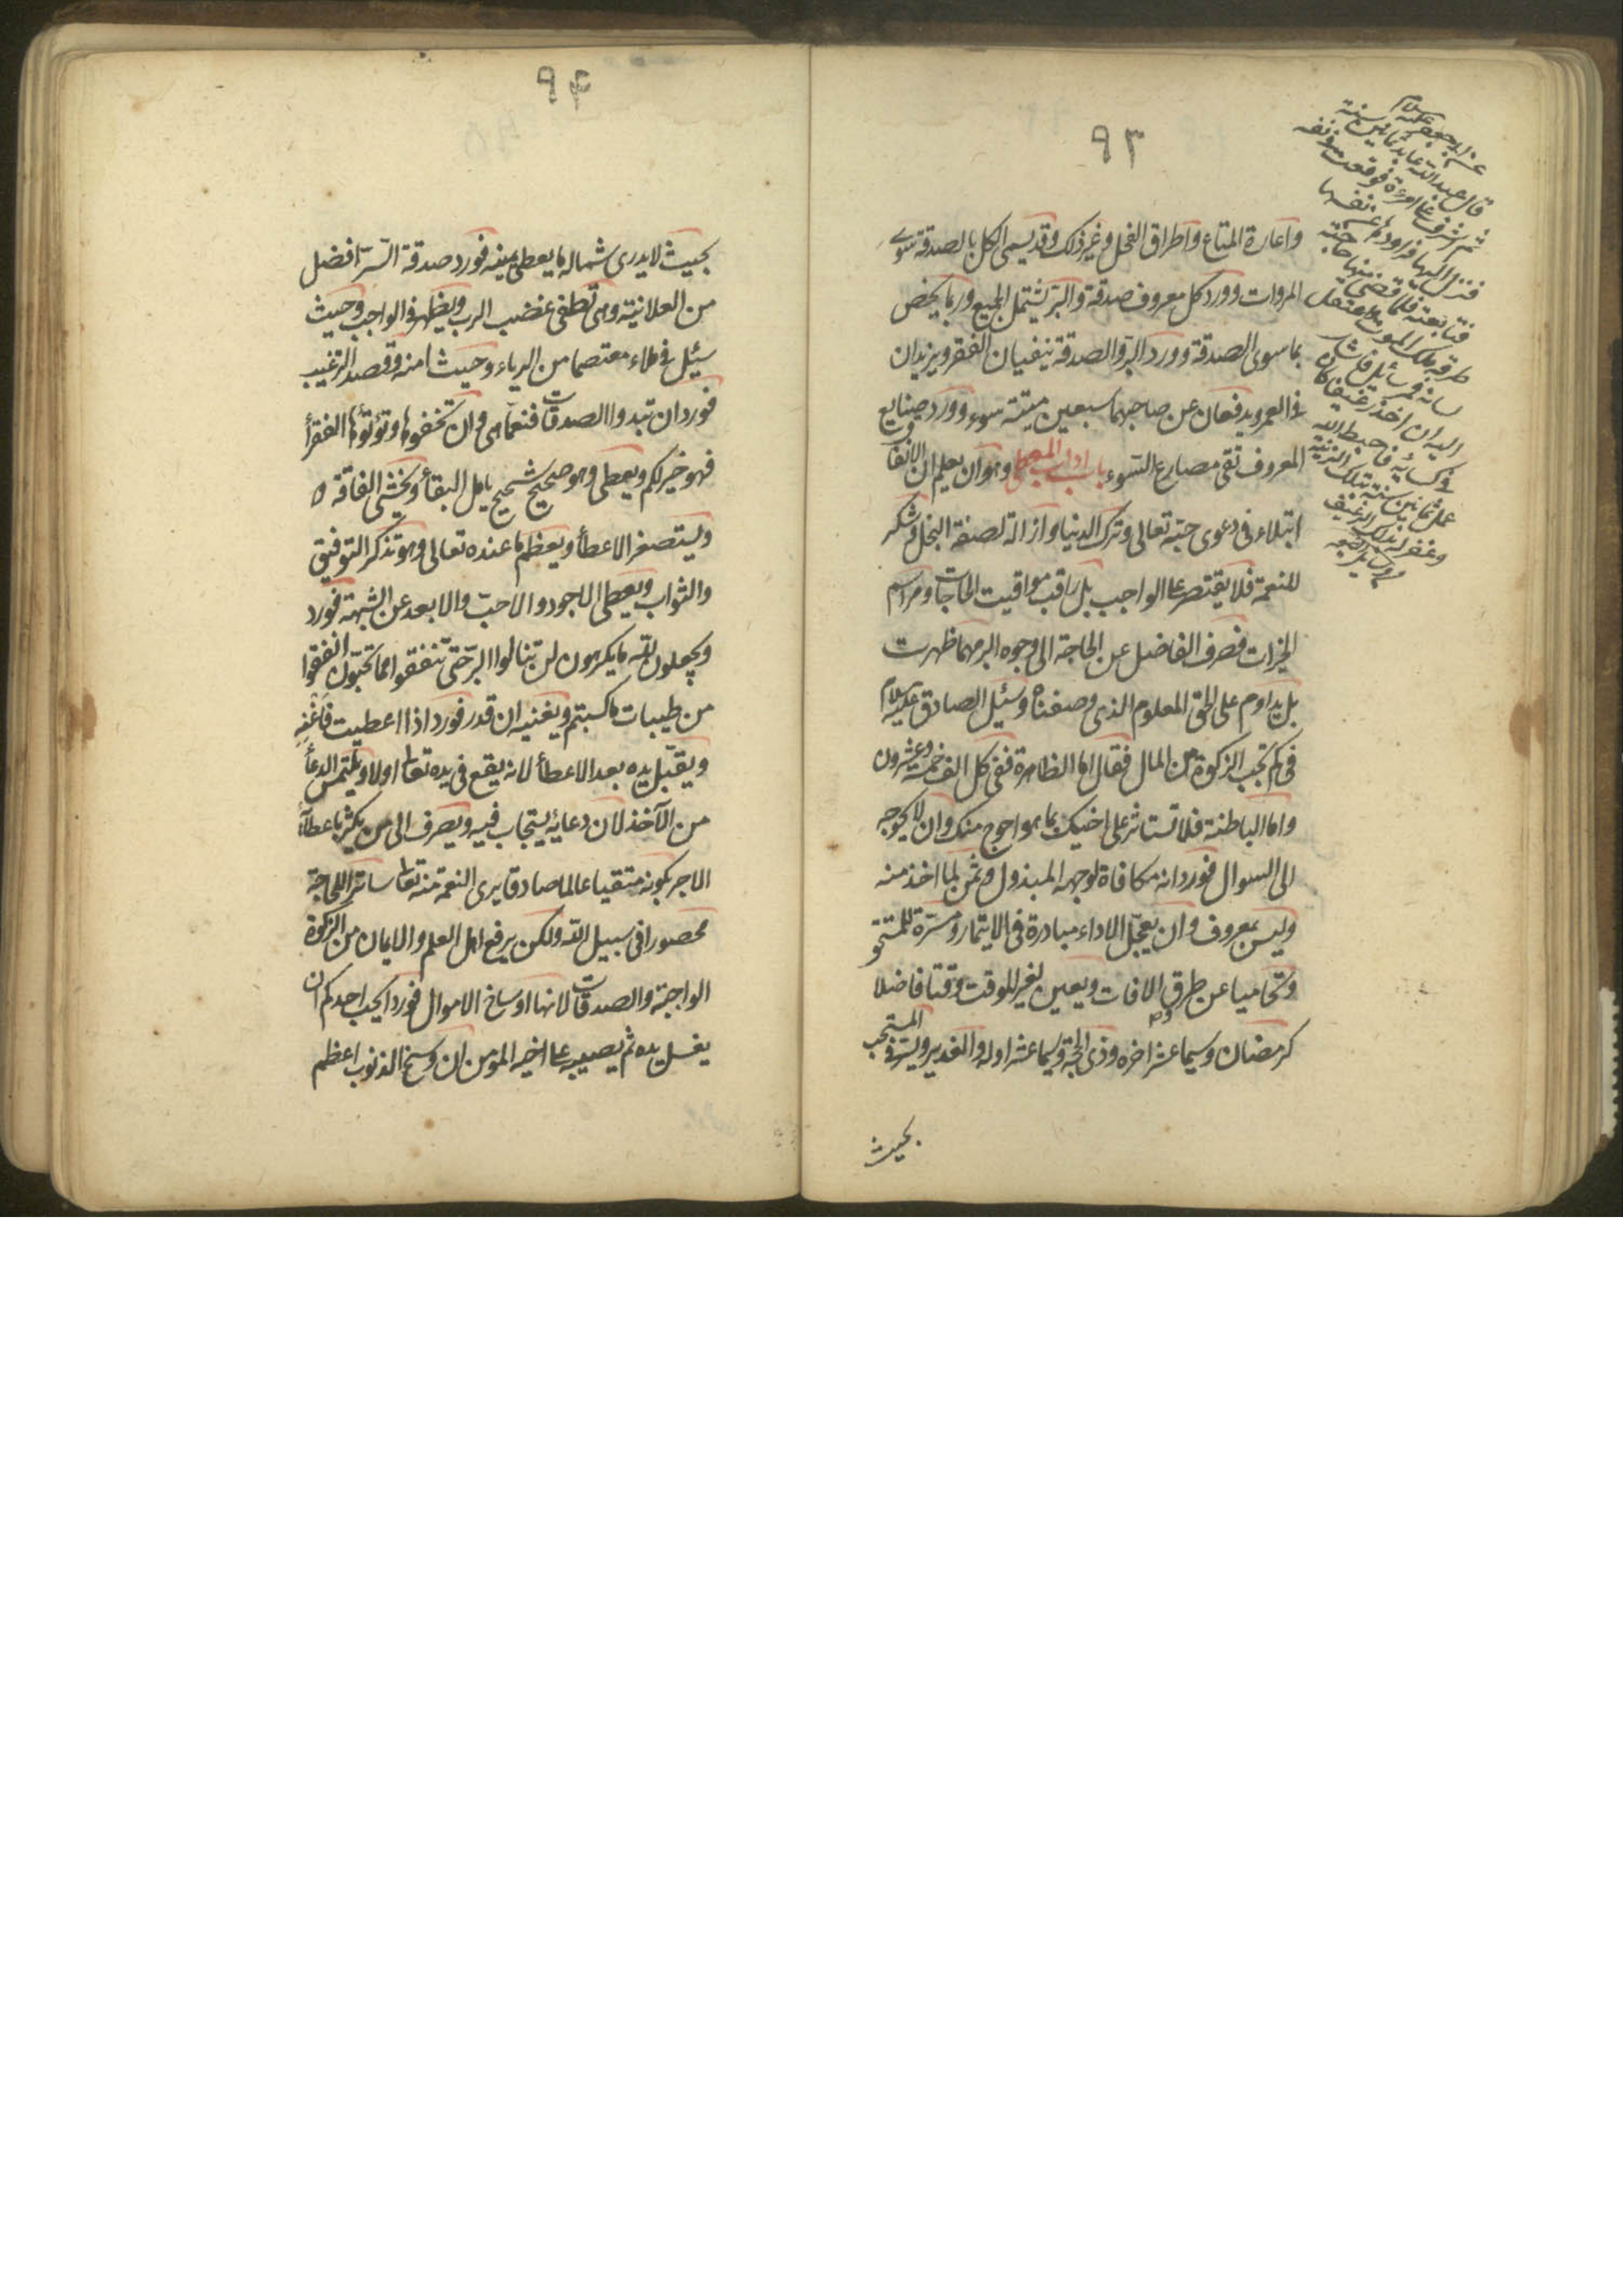 ٩٣
واعارة المتاع واطراق الفحل وغير ذلك وقد يسمى الكل بالصدقة سوى
المروات وورد كل معروف صدقة والبر يشتمل الجميع وربما يخص
بما سوى الصدقة وورد البر والصدقة ينفيان الفقر ويزيدان
فى العمر ويدفعان عن صاحبهما سبعين ميتة سوء وورد صنايع
المعروف تقى مصارع السوء باب اداب المعطى وهو ان يعلم ان الانفاق
ابتلاء فى دعوى حبه تعالى وترك الدنيا وازالة لصفة البخل وشكر
للنعمة فلا يقتصر على الواجب بل يراقب مواقيت الحاجات ومراسم
الخيرات فصرف الفاضل عن الحاجة الى وجوه البر مهما ظهرت
بل يداوم على الحق المعلوم الذى وصفناه وسئيل الصادق عليه السلام
فى كم تجب الزكوة من المال فقال اما الظاهرة ففى كل الف خمسة وعشرون
واما الباطنة فلا تستاثر على اخيك بما هو احوج منك وان لا يحوجه
الى السوال فورد انه مكافاة لوجهه المبذول وثمن لما اخذ منه
وليس بمعروف وان يعجل الاداء مبادرة فى الايتمار ومسرة للمستحق
وتحاميا عن طرق الافات ويعين لغير الموقت وقتا فاضلا
كرمضان وسيما عشر اخره وذى الحجة وسيما عشر اوله والغدير ويستر فى المستحب
بحيث
عن ابى جعفر عليه السلام
قال عبد الله عابد ثمانين سنة
ثم اشرف على امرءة فوقعت فى نفسه
فنزل اليها فراودها عن نفسها
فتابعته فلما قضى منها حاجته
طرقه ملك الموت فاعتقل
لسانه فمر سائل فاشار
اليه ان اخذ رغيفا كان
فى كسائه فاحبط الله
عمل ثمانين سنة بتلك الزنية
وغفر له بذلك الرغيف
٩۴
بحيث لا يدرى شماله ما يعطى يمينه فورد صدقة السر افضل
من العلانية وهى تطفى غضب الرب ويظهر فى الواجب وحيث
سئيل فى ملاء معتصما من الرياء وحيث امنه وقصد الترغيب
فورد ان تبدوا الصدقات فنعما هى وان تخفوها وتؤتوها الفقرأ
فهو خير لكم ويعطى وهو صحيح شحيح يامل البقأ ويخشى الفاقة
ويستصغر الاعطأ ويعظم ما عنده تعالى وهو تذكر التوفيق
والثواب ويعطى الاجود والاحب والابعد عن الشبهة فورد
ويجعلون لله ما يكرهون لن تنالوا البر حتى تنفقوا مما تحبون انفقوا
من طيبات ما كسبتم ويغنيه ان قدر فورد اذا اعطيت فاغنه
ويقبل يده بعد الاعطأ لانه يقع فى يده تعالى اولا ويلتمس الدعأ
من الآخذ لان دعائه يستجاب فيه ويصرف الى من يكثر باعطائه
الاجر بكونه متقيا عالما صادقا يرى النعمة منه تعالى ساترا للحاجة
محصورا فى سبيل الله ولكن يرفع اهل العلم والايمان من الزكوة
الواجبة والصدقات لانها اوساخ الاموال فورد ايحب احدكم ان
يغسل يده ثم يصيبه على اخيه المؤمن ان وسخ الذنوب اعظم